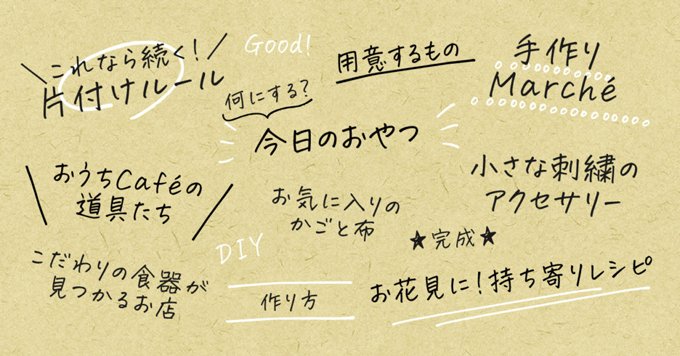 これなら続く!
片付けルール
Good!
用意するもの
手作り
Marché
何にする?
今日のおやつ
おうちCaféの
道具たち
お気に入りの
かごと布
小さな刺繍の
アクセサリー
DIY
★完成★
こだわりの食器が
見つかるお店
作り方
お花見に!持ち寄りレシピ